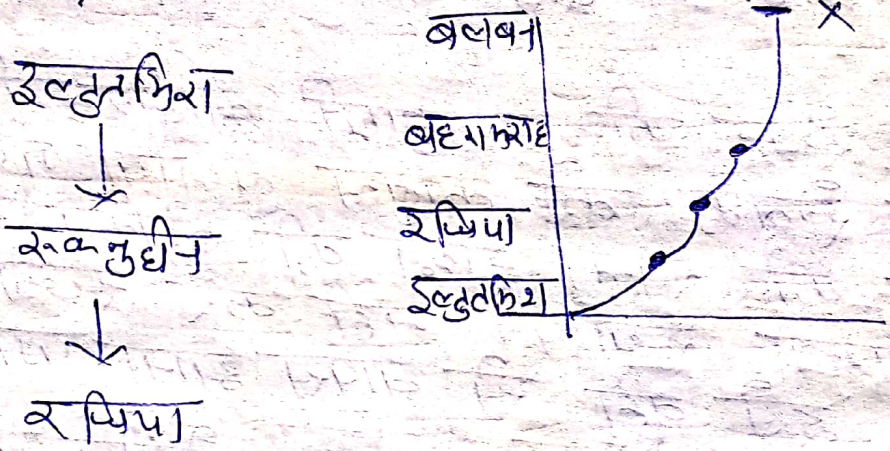 इल्तुतमिश
रुकनुद्दीन
रजिया
बलबन
बहरामशाह
रजिया
इल्तुतमिश
X